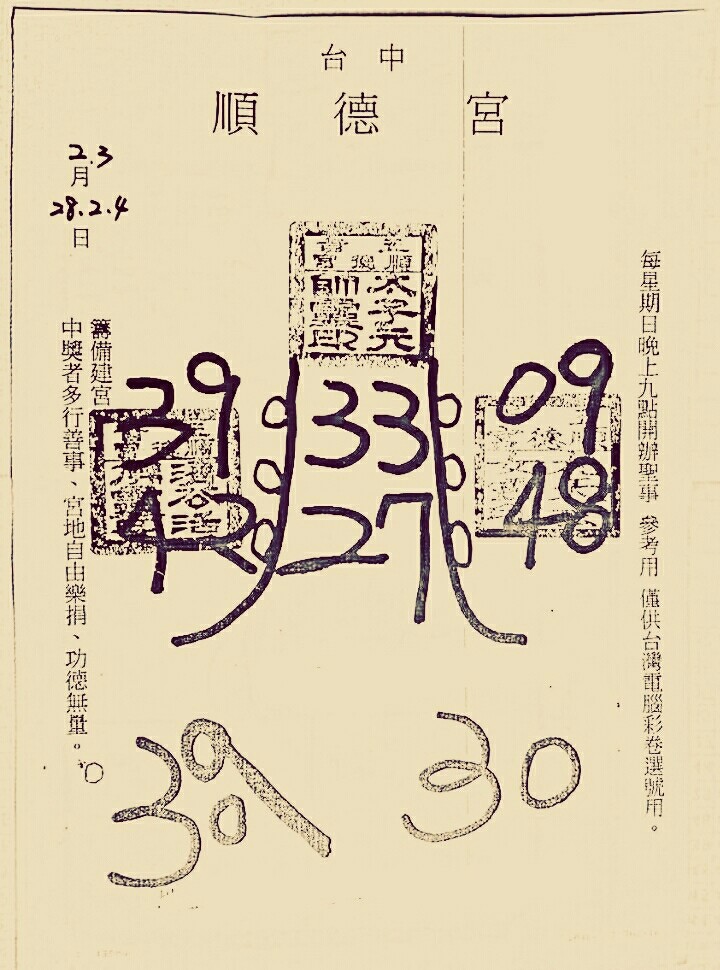 台中
順德宮
2.3
月
28.2.4
日
每星期日晚上九點開辦聖事 參考用 僅供台灣電腦彩卷選號用。
太子元
帥靈印
39 33 09
42 27 48
39 30
籌備建宮
中獎者多行善事、宮地自由樂捐、功德無量。